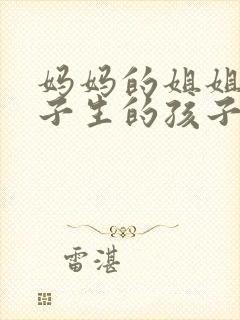 妈妈的姐姐
子生的孩子
雷湛